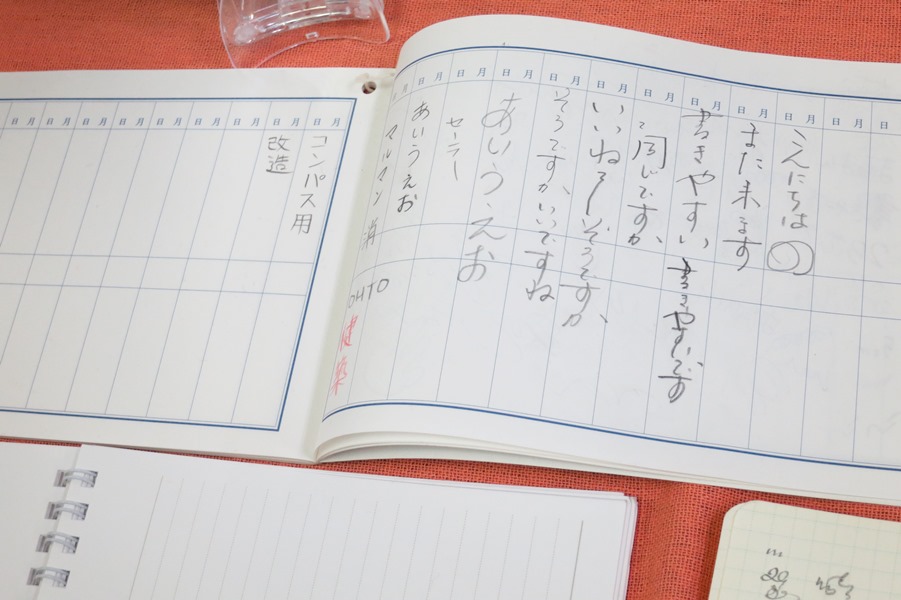 こんにちは
また来ます
書きやすい 書きやすいです
同じですか、
いいね〜いそうですか、
そうですか、いいですね
あいうえお
セーラー
あいうえお
マルマン 消
OHTO
健康
コンパス用
改造
月 日 月 日 月 日 月 日 月 日 月 日 月 日 月 日 月 日 月 日
月 日 月 日 月 日 月 日 月 日 月 日 月 日 月 日 月 日